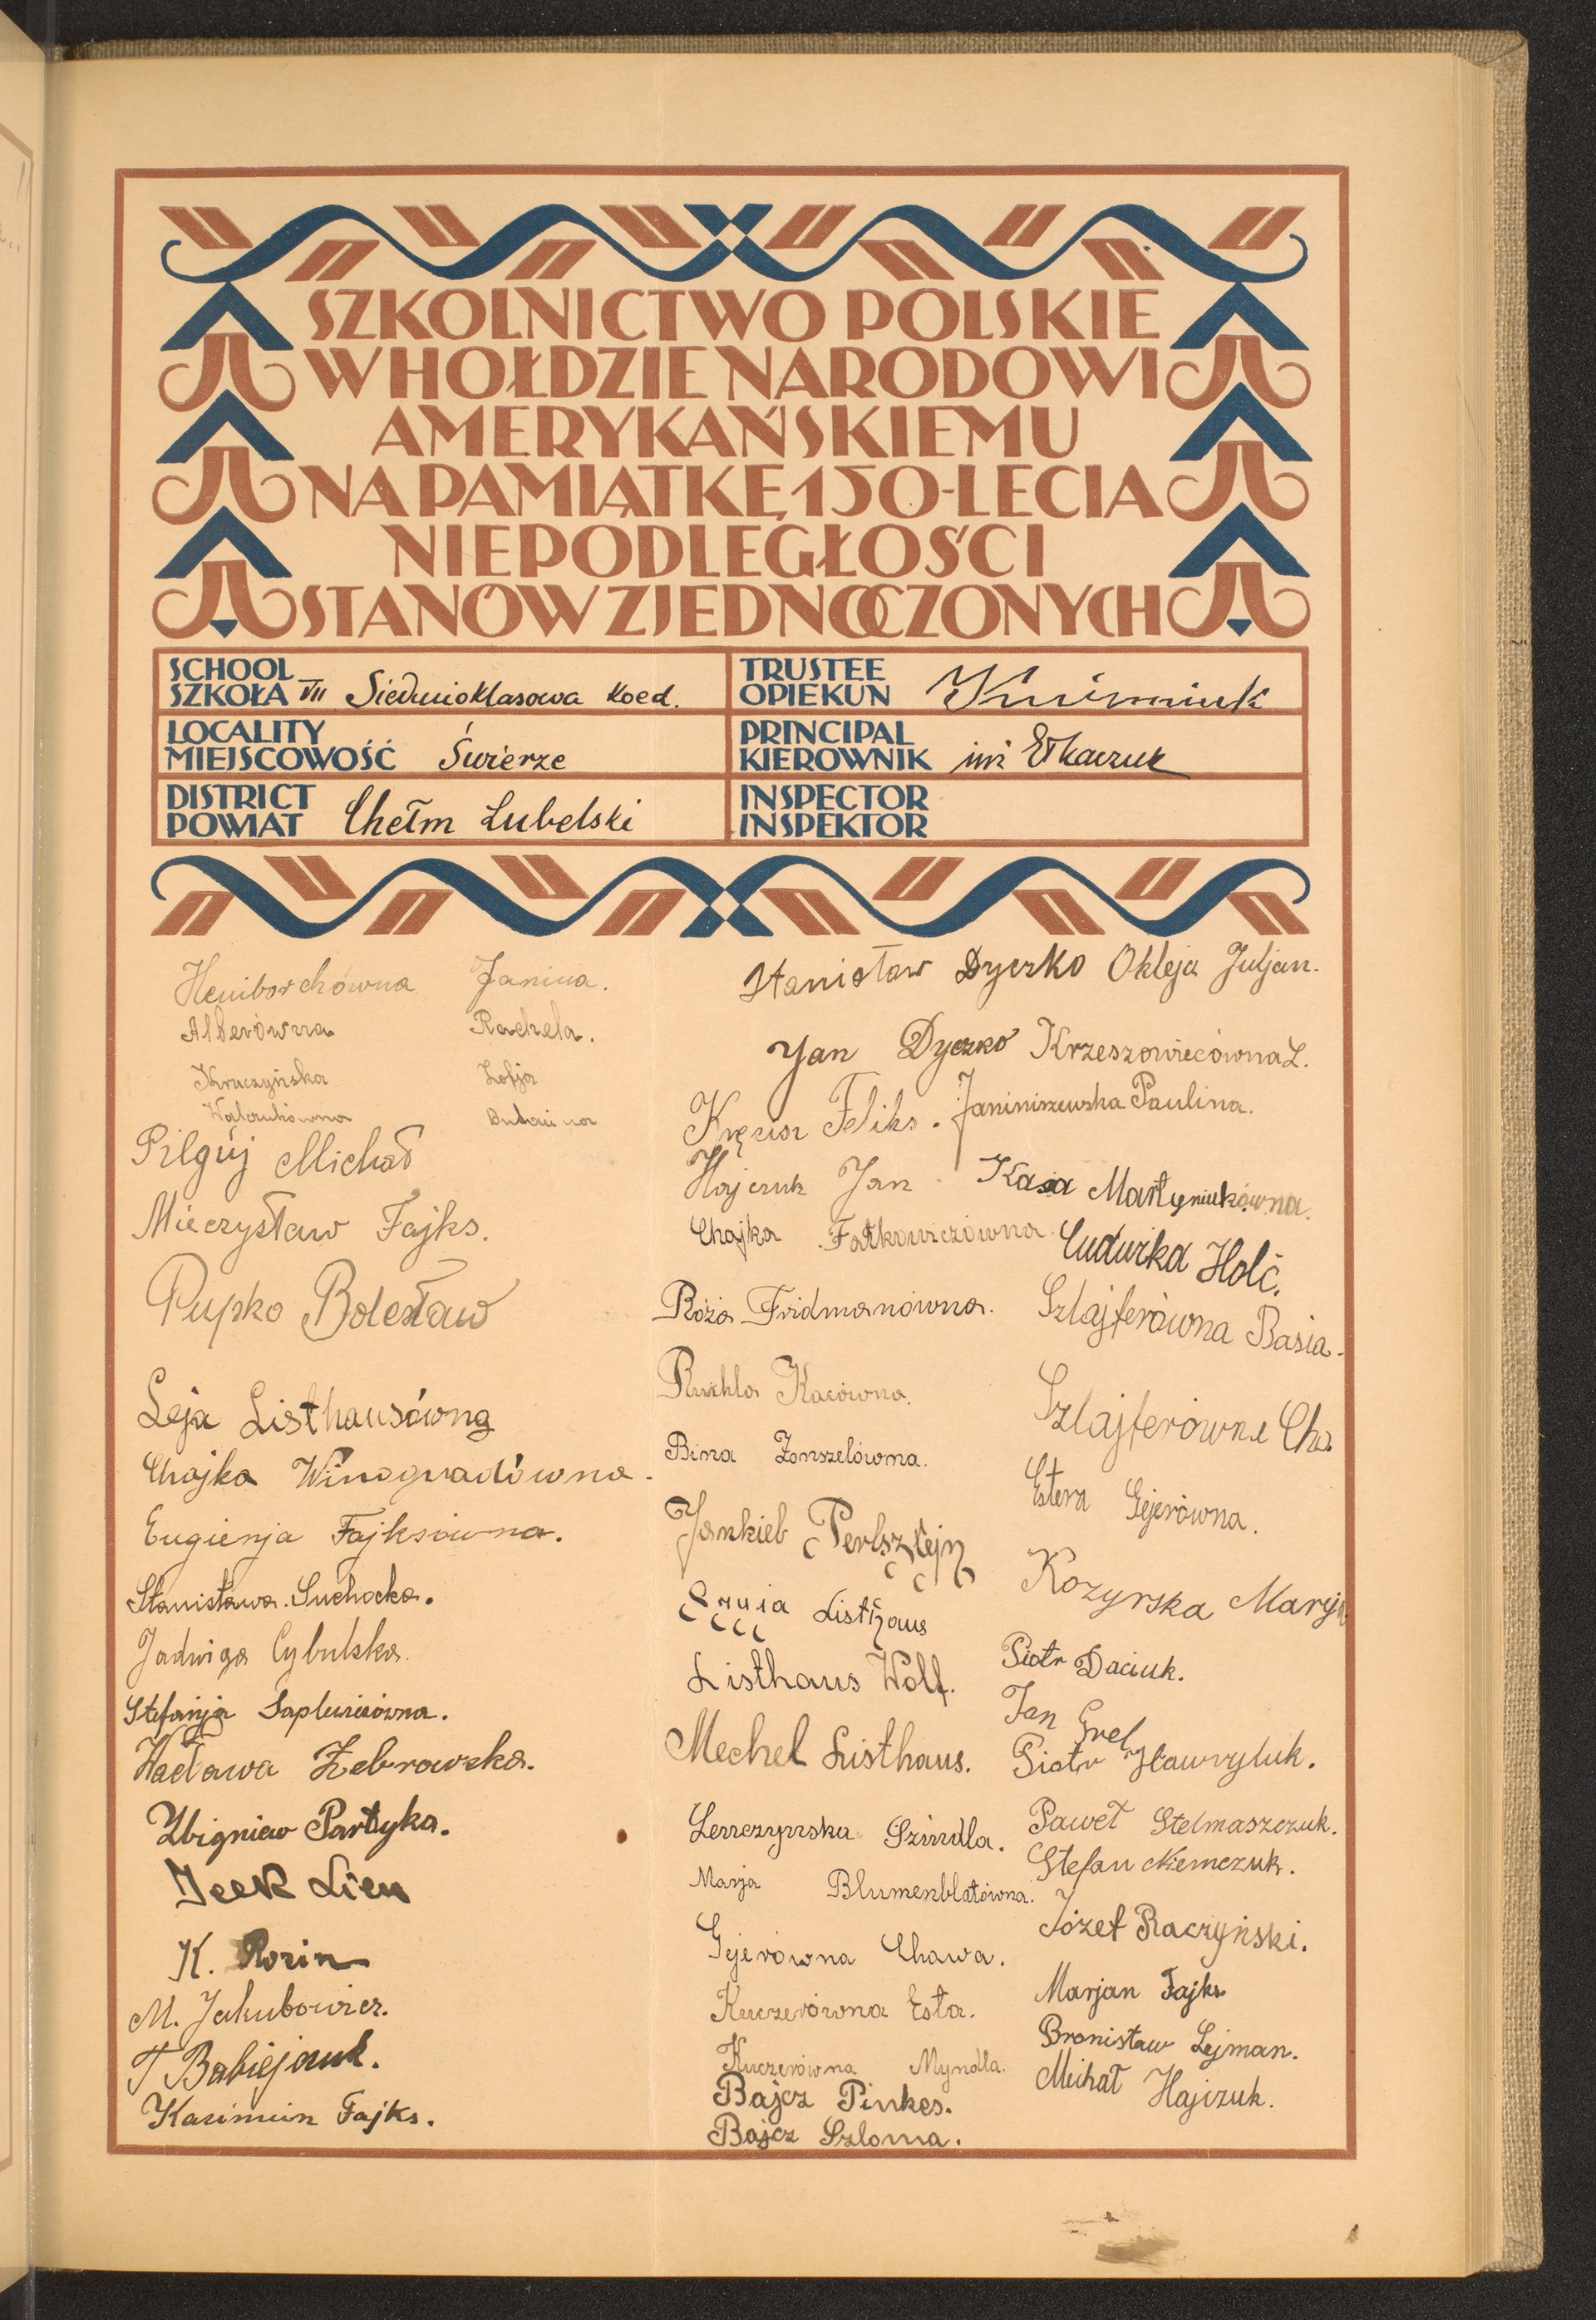 SZKOLNICTWO POLSKIE
W HOŁDZIE NARODOWI
AMERYKAŃSKIEMU
NA PAMIĄTKĘ 150-LECIA
NIEPODLEGŁOŚCI
STANÓW ZJEDNOCZONYCH
SCHOOL
SZKOŁA VII Siedmioklasowa Koed.
TRUSTEE
OPIEKUN
LOCALITY
MIEJSCOWOŚĆ Świerze
PRINCIPAL
KIEROWNIK
DISTRICT
POWIAT Chełm Lubelski
INSPECTOR
INSPEKTOR
Heniborchówna Janina.
Alterówna Rachela.
Kruczyńska Zofja
Walczukówna
Pilguj Michał
Mieczysław Fajks.
Pupko Bolesław
Leja Listhausówna
Chajka Winogradówna.
Eugienja Fajksówna.
Stanisława Suchocka.
Jadwiga Cybulska.
Stefanja
Wacława Żebrowska.
Zbigniew Partyka.
Icek Lien
K. Rozin
M. Jakubowicz.
T Babiejczuk.
Kazimierz Fajks.
Stanisław Dyczko
Jan Dyczko
Feliks.
Hajczuk Jan
Chajka Fałkowiczówna
Róża Fridmanówna.
Ruchla Kacówna.
Bina Zonszelówna.
Jankiel Perlsztejn
Listhaus
Listhaus Wolf.
Mechel Listhaus.
Lerczynska Szindla.
Marja Blumenblatówna.
Gejerówna Chawa.
Kuczerówna Esta.
Kuczerówna Myndla.
Bajcz Pinkes.
Bajcz Szloma.
Okleja Juljan.
Krzeszowiecówna L.
Janiniszewska Paulina.
Kasa Martyniukówna.
Holc.
Szlajferówna Basia.
Szlajferówna Cha
Estera Gejerówna.
Kozyrska Marja
Piotr Daciuk.
Jan Grel
Piotr Hawryluk.
Paweł Stelmaszczuk.
Stefan Niemczuk.
Józef Raczyński.
Marjan Fajks
Bronisław Lejman.
Michał Hajczuk.